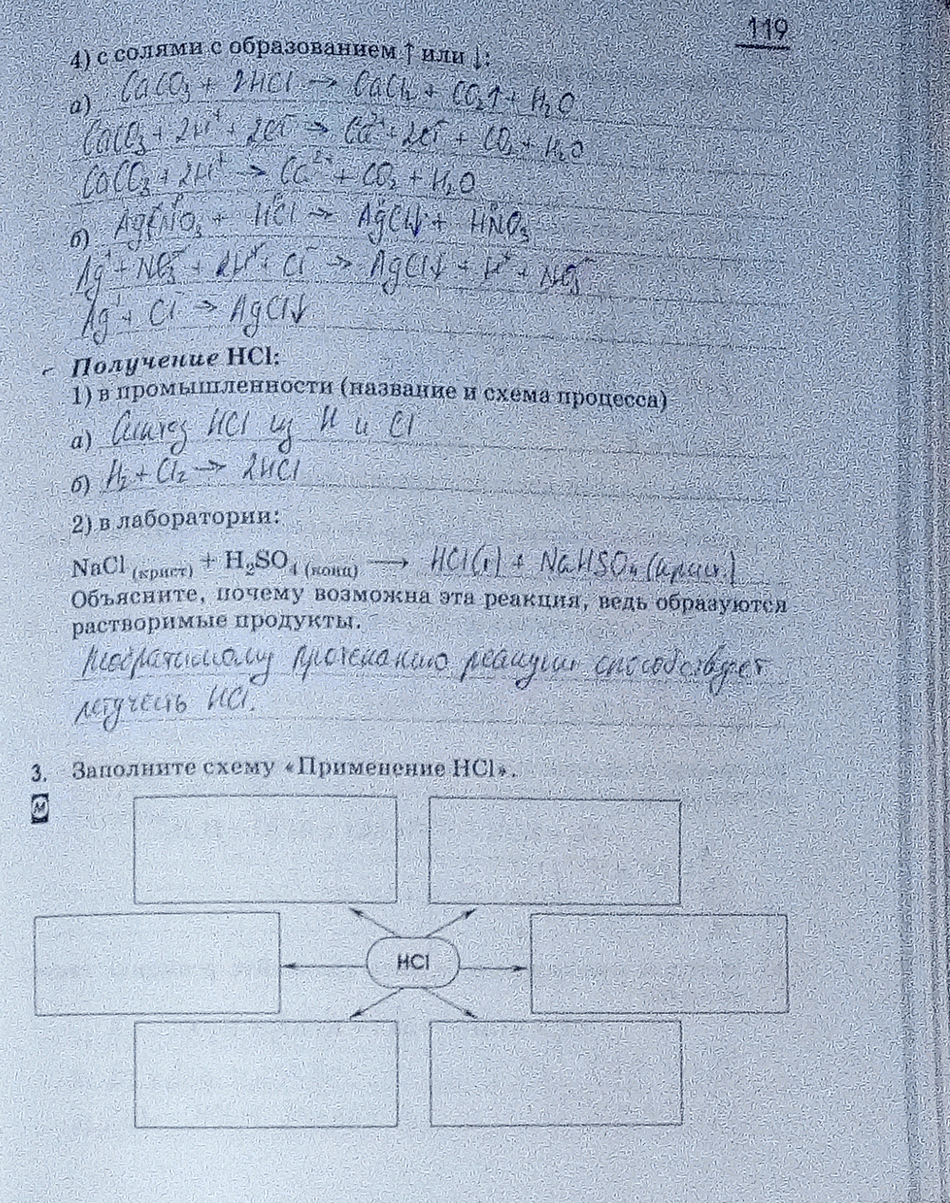 119
4) с солями с образованием ↑ или ↓:
а) CaCO₃ + 2HCl → CaCl₂ + CO₂↑ + H₂O
CaCO₃ + 2H⁺ + 2Cl⁻ → Ca²⁺ + 2Cl⁻ + CO₂ + H₂O
CaCO₃ + 2H⁺ → Ca²⁺ + CO₂ + H₂O
б) AgNO₃ + HCl → AgCl↓ + HNO₃
Ag⁺ + NO₃⁻ + H⁺ + Cl⁻ → AgCl↓ + H⁺ + NO₃⁻
Ag⁺ + Cl⁻ → AgCl↓
Получение HCl:
1) в промышленности (название и схема процесса)
а) Синтез HCl из H и Cl
б) H₂ + Cl₂ → 2HCl
2) в лаборатории:
NaCl (крист) + H₂SO₄ (конц) ⟶ HCl(г) + NaHSO₄ (крист.)
Объясните, почему возможна эта реакция, ведь образуются
растворимые продукты.
Необратимому протеканию реакции способствует
летучесть HCl.
3. Заполните схему «Применение HCl».
М
HCl